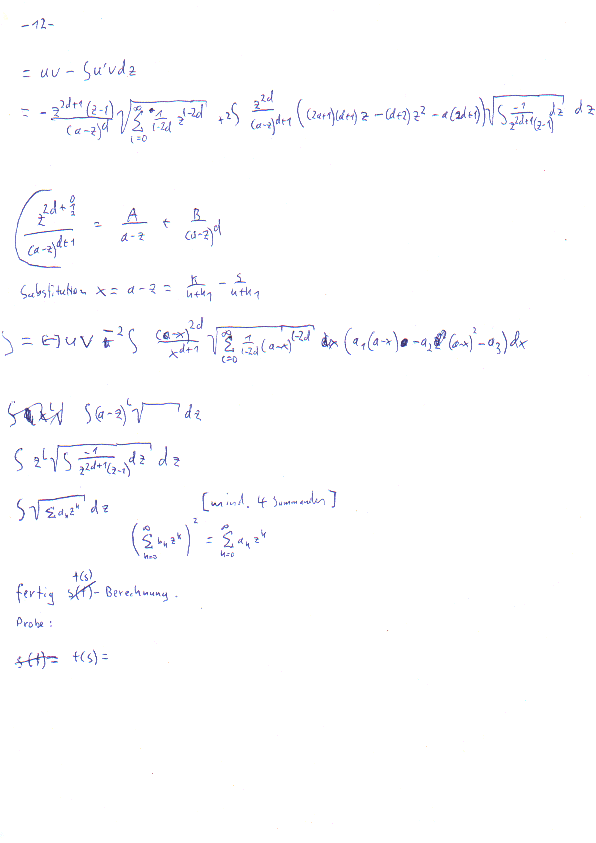 -12-
= uv - ∫u'vdz
= - z^{2d+1}(z-1)/(a-z)^d √(∑_{i=0}^∞ 1/(i-2d) z^{i-2d}) + 2∫ z^{2d}/(a-z)^{d+1} ((2a+1)(d+1)z - (d+2)z² - a(2d+1)) √(∫ -1/(z^{2d+1}(z-1)) dz) dz
z^{2d+}/(a-z)^{d+1} = A/(a-z) + B/(a-z)^d
Substitution x = a-z =
∫ = uv 2∫ (a-x)^{2d}/x^{d+1} √(∑_{i=0}^∞ 1/(i-2d) (a-x)^{i-2d}) (a₁(a-x) - a₂(a-x)² - a₃)dx
∫(a-z)^i √ dz
∫ z^i √(∫ -1/(z^{2d+1}(z-1)) dz) dz
∫√(∑ aₖz^k) dz [mind. 4 Summanden]
(∑_{k=0}^∞ bₖz^k)² = ∑_{k=0}^∞ aₖz^k
fertig t(s) - Berechnung.
Probe:
t(s) =